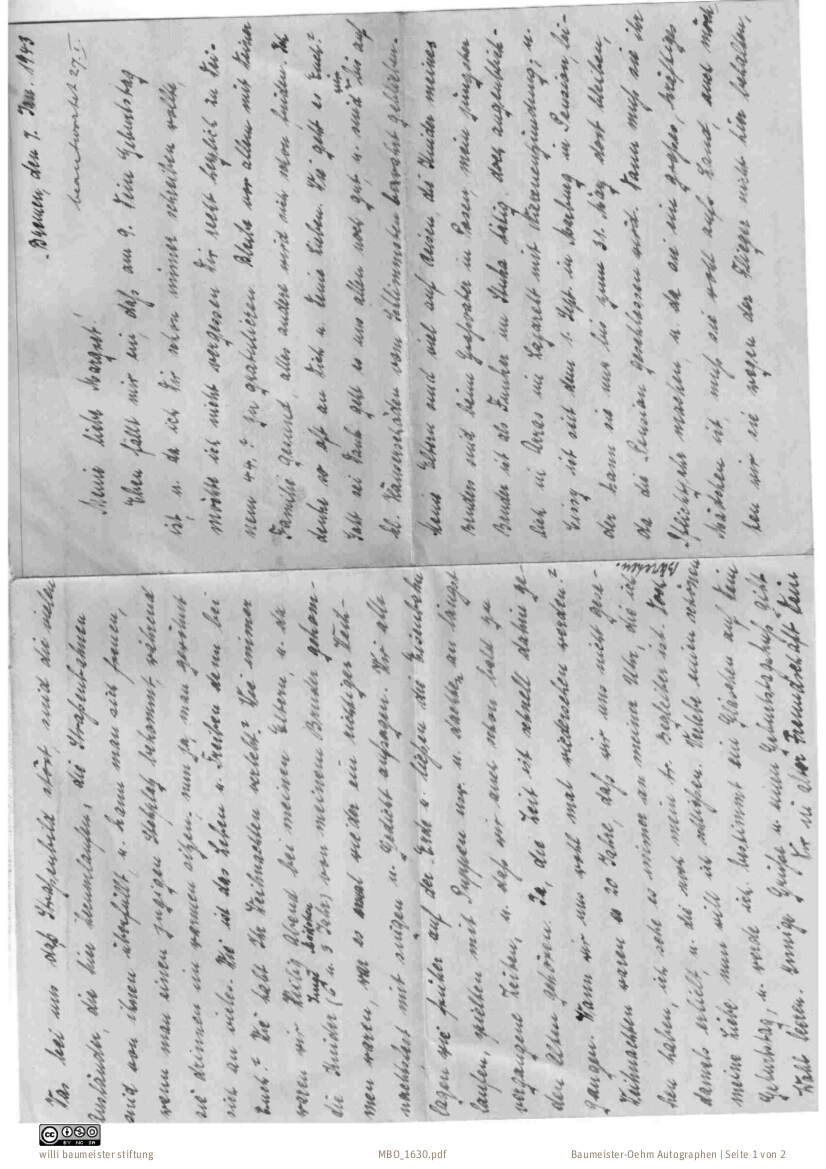 Bremen, den 7. Jan. 1943
beantwortet 27.I.
Meine liebe Margrit!
Eben fällt mir ein, daß am 9. Dein Geburtstag
ist, u. da ich Dir schon immer schreiben wollte,
möchte ich nicht vergessen Dir recht herzlich zu Dei-
nem 44.? zu gratulieren. Bleibe vor allem mit Deiner
Familie gesund, alles andere wird sich schon finden. Ich
denke so oft an Dich u. Deine Lieben. Wie geht es Euch?
Gott sei Dank geht es uns allen noch gut, u. sind wir bis auf
kl. Häuserschäden vom Schlimmsten bewahrt geblieben.
Meine Eltern sind viel auf Reisen, die Kinder meines
Bruders sind beim Großvater in Posen, mein jüngster
Bruder ist als Funker im Stuka tätig, doch augenblick-
lich in Arras im Lazarett mit Nierenentzündung, u.
ist seit dem 1. Sept in Marburg in Pension, lei-
der kann sie nur bis zum 31. März dort bleiben,
da die Pension geschlossen wird. Dann muß sie ihr
Pflichtjahr machen, u. da sie ein großes, kräftiges
Mädchen ist, muß sie wohl aufs Land, auch möch-
ten wir sie wegen der Flieger nicht hier behalten,
Was bei uns das Straßenbild stört, sind die vielen
Ausländer, die hier herumlaufen, die Straßenbahnen
sind von ihnen überfüllt, u. kann man sich freuen,
wenn man einen zugigen Stehplatz bekommt, während
sie drinnen im warmen sitzen. nun ja, man gewöhnt
sich an vieles. Wie ist das Leben u. Treiben denn bei
Euch? Wie habt Ihr Weihnachten verlebt? Wie immer
waren wir Heilig Abend bei meinen Eltern, u. da
die beiden Kinder (6 u. 5 Jahre) von meinem Bruder gekom-
men waren, war es mal wieder ein richtiges Weih-
nachtsfest mit singen u. Gedicht aufsagen. Wir alle
lagen wie früher auf der Erde u. ließen die Eisenbahn
laufen, spielten mit Puppen usw. u. dachten an längst
vergangene Zeiten, u. daß wir auch schon bald zu
den Alten gehören. Ja, die Zeit ist schnell dahin ge-
gangen. Wann wir uns wohl mal wiedersehen werden?
Weihnachten waren es 20 Jahre, daß wir uns nicht gese-
hen haben, ich sehe es immer an meiner Uhr, die ich
damals erhielt, u. die noch mein tr. Begleiter ist. Von
meine Liebe nun will ich schließen. Verlebe einen schönen
Geburtstag, u. werde ich bestimmt ein Gläschen auf Dein
Wohl leeren. Innige Grüße u. einen Geburtstagskuß gibt
Dir in alter Freundschaft Dein
Bärchen.
willi baumeister stiftung
MBO_1630.pdf
Baumeister-Oehm Autographen | Seite 1 von 2